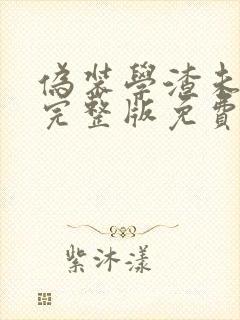 偽裝學渣未
完整版免費
紫沐漾